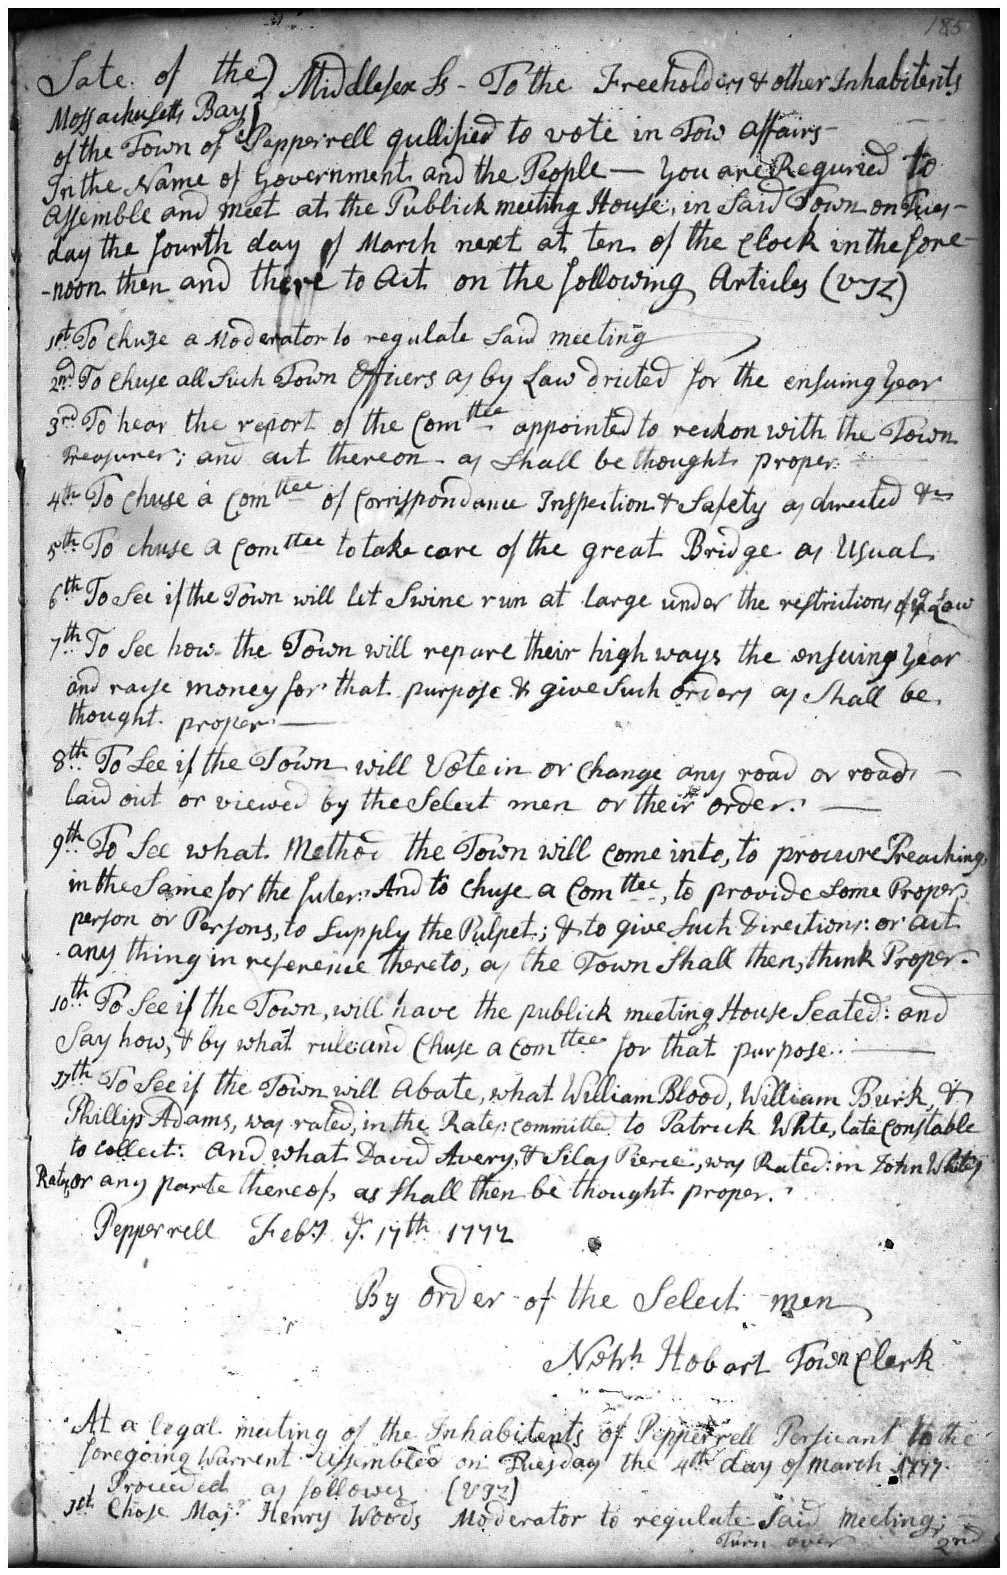 185
Sate of the } Middlesex Ss - To the Freeholders & other Inhabitents
Mossachusetts Bay
of the Town of Pepperrell qullified to vote in Tow affairs -
In the Name of Government and the People — You are Requried to
assemble and meet at the Publick meeting House, in Said Town on Tues-
day the fourth day of March next at ten of the Clock in the fore-
-noon then and there to Act on the following Articles (viz)
1st To chuse a Moderator to regulate said meeting
2nd To chuse all such Town Officers as by Law dricted for the ensuing Year
3rd To hear the report of the Comttee appointed to reckon with the Town
Treasurer; and act thereon as shall be thought proper
4th To Chuse a Comttee of Corrispondance Inspection & Safety as directed &c
5th To chuse a Comttee to take care of the great Bridge as Usual
6th To See if the Town will let Swine run at large under the restrictions of ye Law
7th To See how the Town will repare their high ways the ensuing Year
and raise money for that purpose & give such orders as shall be
thought proper —
8th To See if the Town will Vote in or change any road or roads —
laid out or viewed by the Select men or their order. —
9th To See what Method the Town will come into, to procure Preaching,
in the Same for the futer: And to chuse a Comttee, to provide some Proper
person or Persons, to Supply the Pulpet; & to give such directions: or act
any thing in reference thereto, as the Town shall then, think Proper.
10th To See if the Town, will have the publick meeting House Seated: and
Say how, & by what rule: and Chuse a Comttee for that purpose. —
11th To See if the Town will Abate, what William Blood, William Burk, &
Phillip Adams, was rated, in the Rates committed to Patrick Whte, late Constable
to collect: And what David Avery, & Silas Pierce, was Rated: in John Whites
Rates, or any parte thereof, as shall then be thought proper.
Pepperrell Feby ye 17th 1777
By order of the Select men
Nehh Hobart Town Clerk
At a legal meeting of the Inhabitents of Pepperrell Persicant to the
foregoing Warrent assembled on Tuesday the 4th day of March 1777.
Proceeded as followes (viz)
1st Chose Majr Henry Woods Moderator to regulate Said meeting;
Turn over 2nd